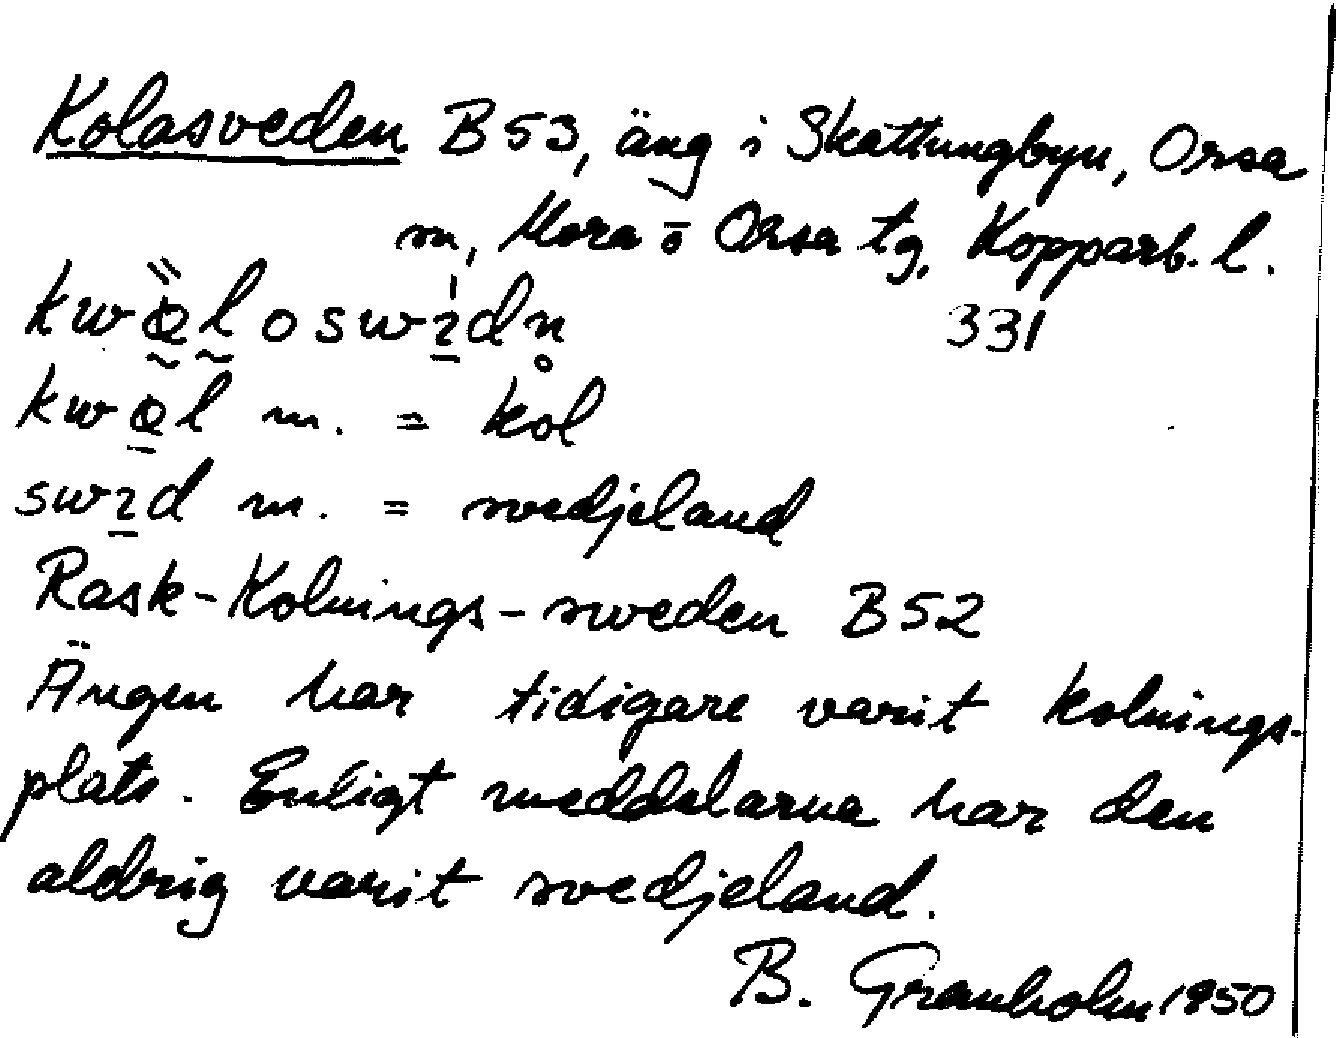 Kolasveden B53, äng i Skattungbyn, Orsa
sn, Mora o Orsa tg, Kopparb. l.
331
m. = kol
m. = svedjeland
Rask-Kolnings-sveden B52
Ängen har tidigare varit kolnings-
plats. Enligt meddelarna har den
aldrig varit svedjeland.
B. Granholm 1950